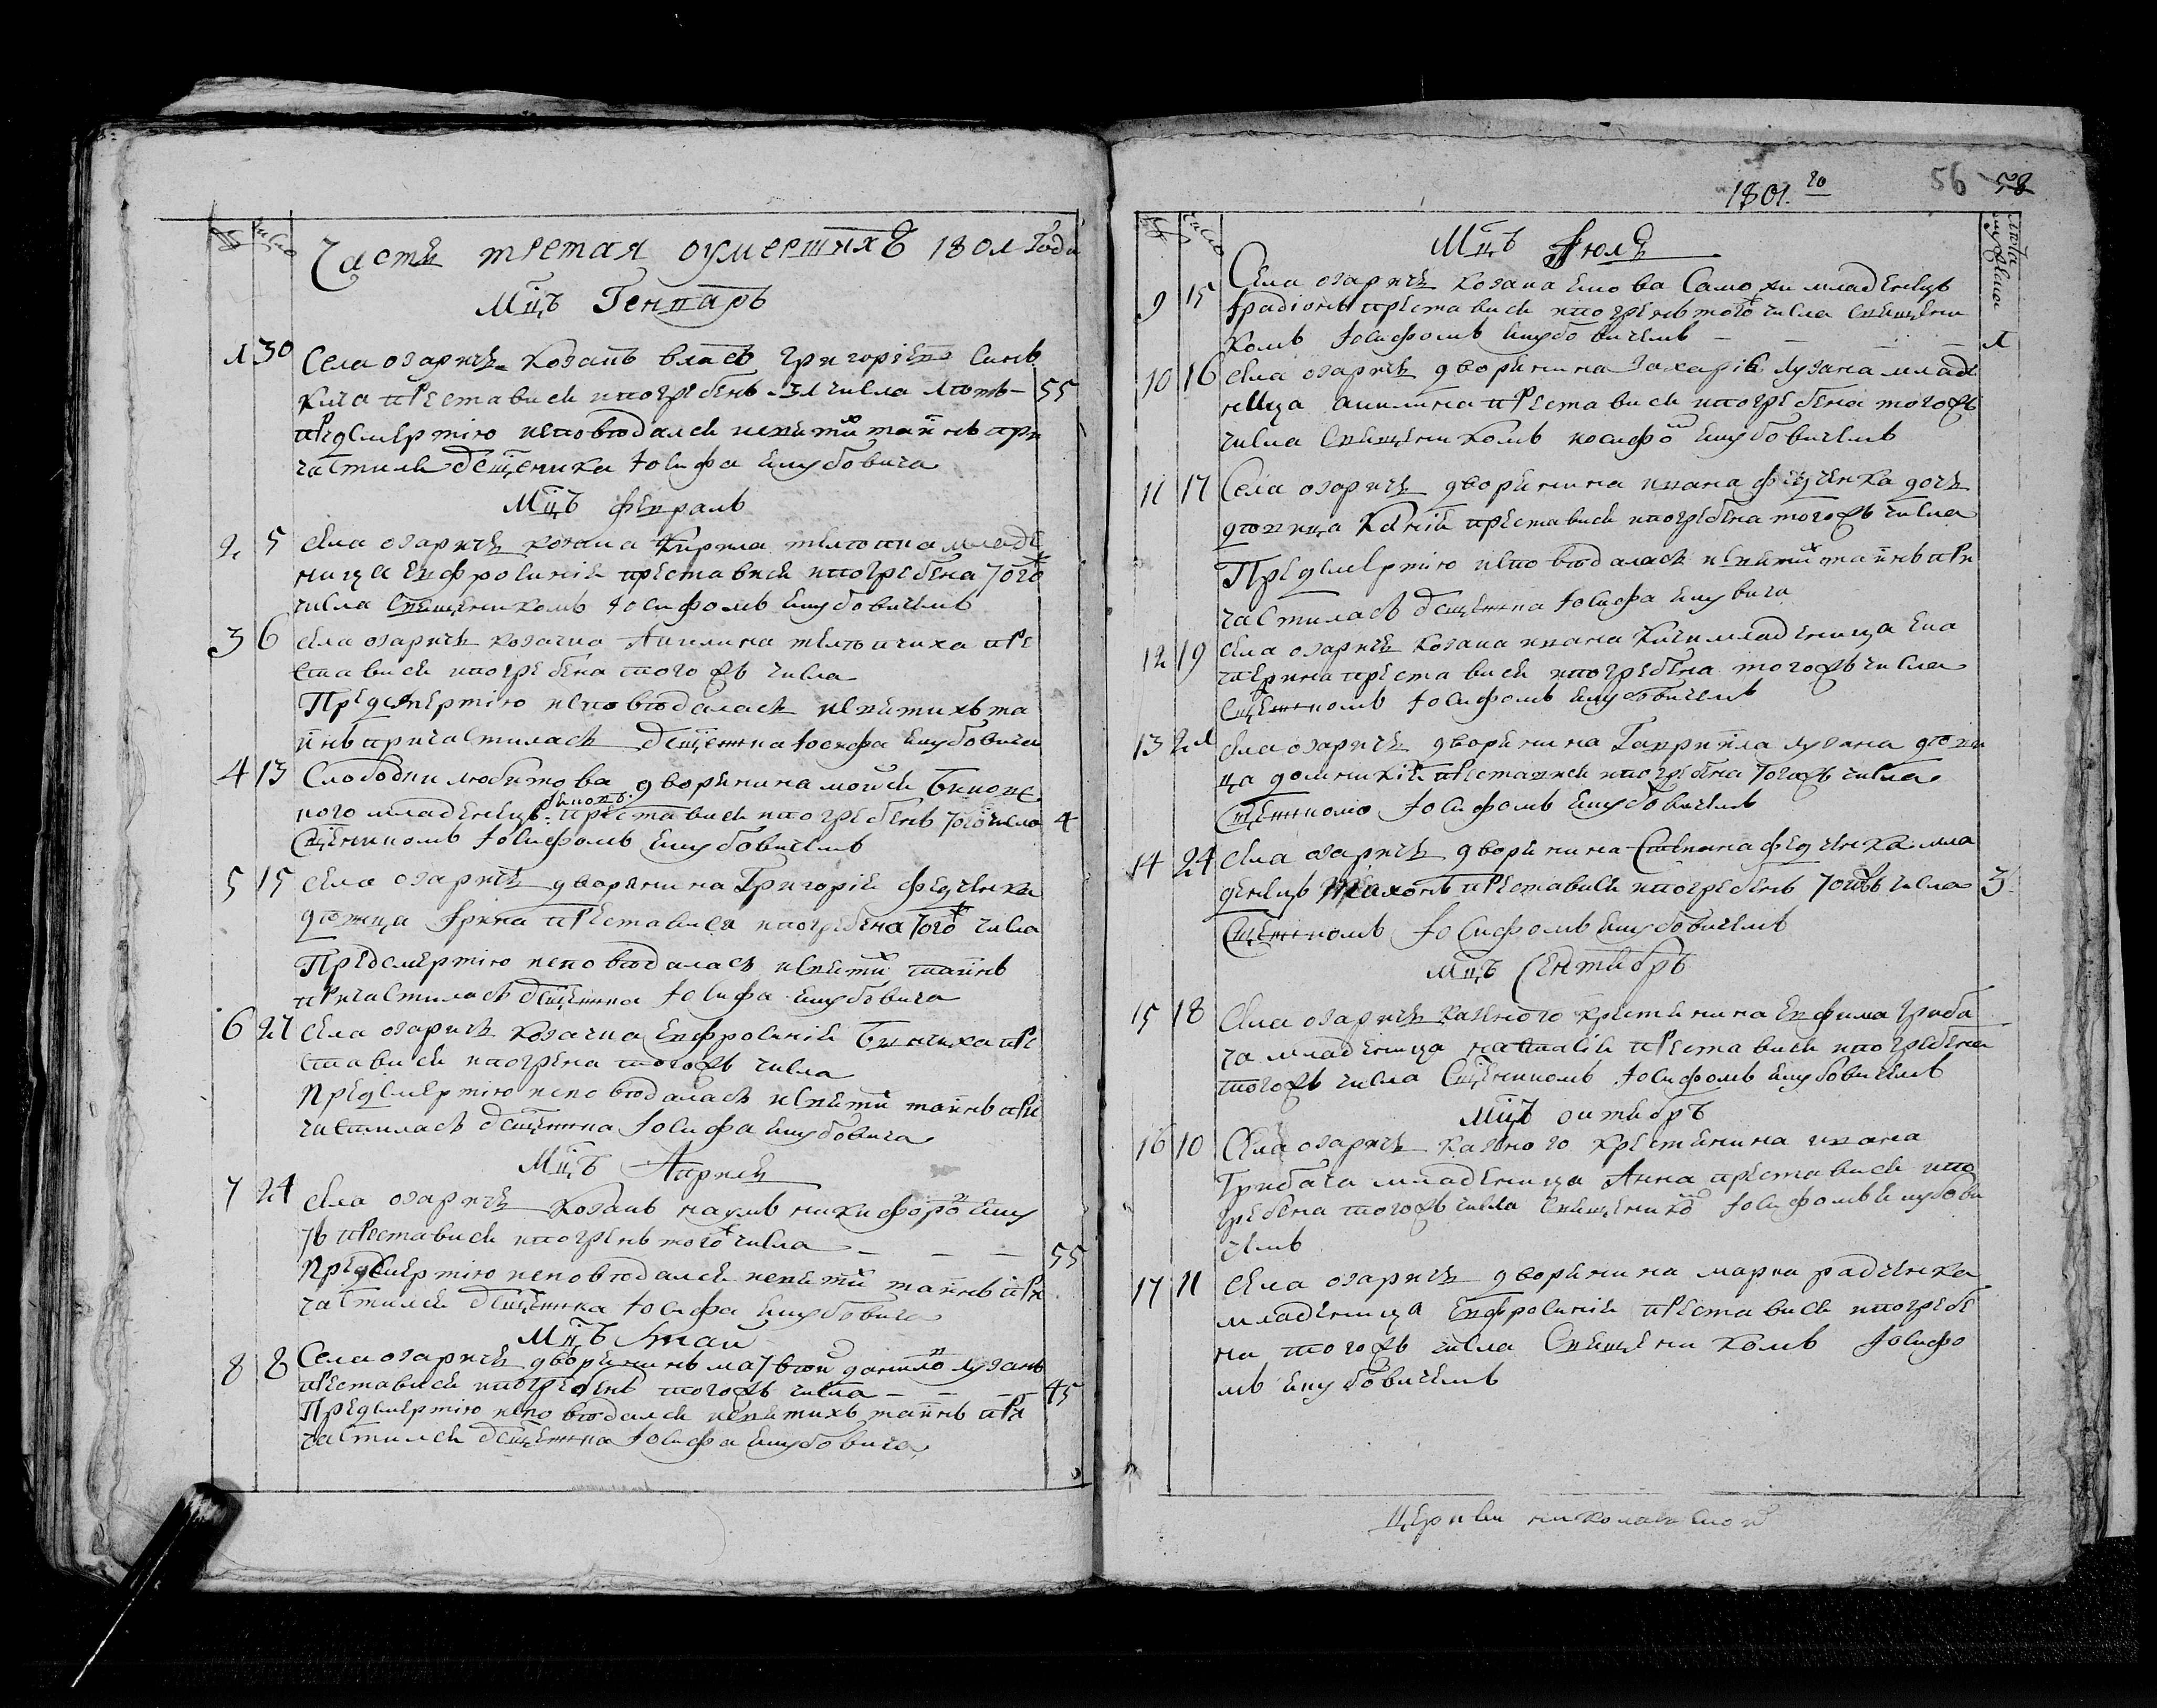 № число
Часть третая оумершихъ 1801 Года
Мцъ Генваръ
1 30 Села озаричъ козакъ власъ григориевъ синъ
Кича преставися и погребенъ 31 числа 55
предсмертию исповѣдался и святих таинъ при
частился священика Иосифа Якубовича
Мцъ февраль
2 5 села озаричъ козака Кирила младе
ница Евфросиния преставися и погребена того
числа священикомъ Иосифомъ Якубовичемъ
3 6 села озаричъ козачка Акилина пре
ставися и погребена тогожъ числа
Предсмертию исповѣдалась и святихъ та
инъ причастилась священика Иосифа Якубовича
4 13 Слободки любитова дворянина
младенецъ преставися и погребенъ того числа 4
Священикомъ Иосифомъ Якубовичемъ
5 15 села озаричъ дворянина Григория федченка
дѣвица Ирина преставися и погребена того числа
Предсмертию исповѣдалась и святих таинъ
причастилась священика Иосифа Якубовича
6 21 села озаричъ козачка Евфросиния пре
ставися и погрена тогожъ числа
предсмертию исповѣдалась и святих таинъ при
частилась священика Иосифа Якубовича
Мцъ Априль
7 24 села озаричъ козакъ наумъ никифоров
преставися и погренъ того числа 55
предсмертию исповѣдался и святих таинъ при
частился священика Иосифа Якубовича
Мцъ Май
8 8 Села озаричъ дворянинъ матвей данилов лузанъ
преставися и погребенъ тогожъ числа 45
Предсмертию исповѣдался и святихъ таинъ при
частился священика Иосифа Якубовича
1801 го 56 58
№ число
Мцъ Июля
лѣта мужеска
9 15 Села озаричъ козака младенецъ
Ирадионъ преставися и погренъ того числа священи
комъ Иосифомъ Якубовичемъ 1
10 16 села озаричъ дворянина Захария лузана младе
ница акилина преставися и погребена тогожъ
числа священикомъ иосифом Якубовичемъ
11 17 Села озаричъ дворянина ивана федченка дочь
дѣвица Ксения преставися и погребена тогожъ числа
Предсмертию исповѣдалась и святих таинъ при
частилась священика Иосифа
12 19 села озаричъ козака ивана Кичи младеница Ека
терина преставися и погребена тогожъ числа
священикомъ Иосифомъ Якубовичемъ
13 21 села озаричъ дворянина Гавриила лузана дѣви
ца доминикия преставися и погребена тогожъ числа
священикомъ Иосифомъ Якубовичемъ
14 24 села озаричъ дворянина Степана федченка мла
денецъ преставися и погребенъ тогожъ числа 3
Священикомъ Иосифомъ Якубовичемъ
Мцъ Сентябръ
15 18 Села озаричъ казеного крестянина Евфима гриба
ча младеница преставися и погребена
тогожъ числа Священикомъ Иосифомъ Якубовичемъ
Мцъ октябръ
16 10 Села озаричъ казеного крестянина ивана
Грибача младеница Анна преставися и по
гребена тогожъ числа священико Иосифомъ Якубови
чемъ
17 11 села озаричъ дворянина марка радченка
младеница Евфросиния преставися и погребе
на тогожъ числа Священикомъ Иосифо
мъ Якубовичемъ
Церкви николаевской